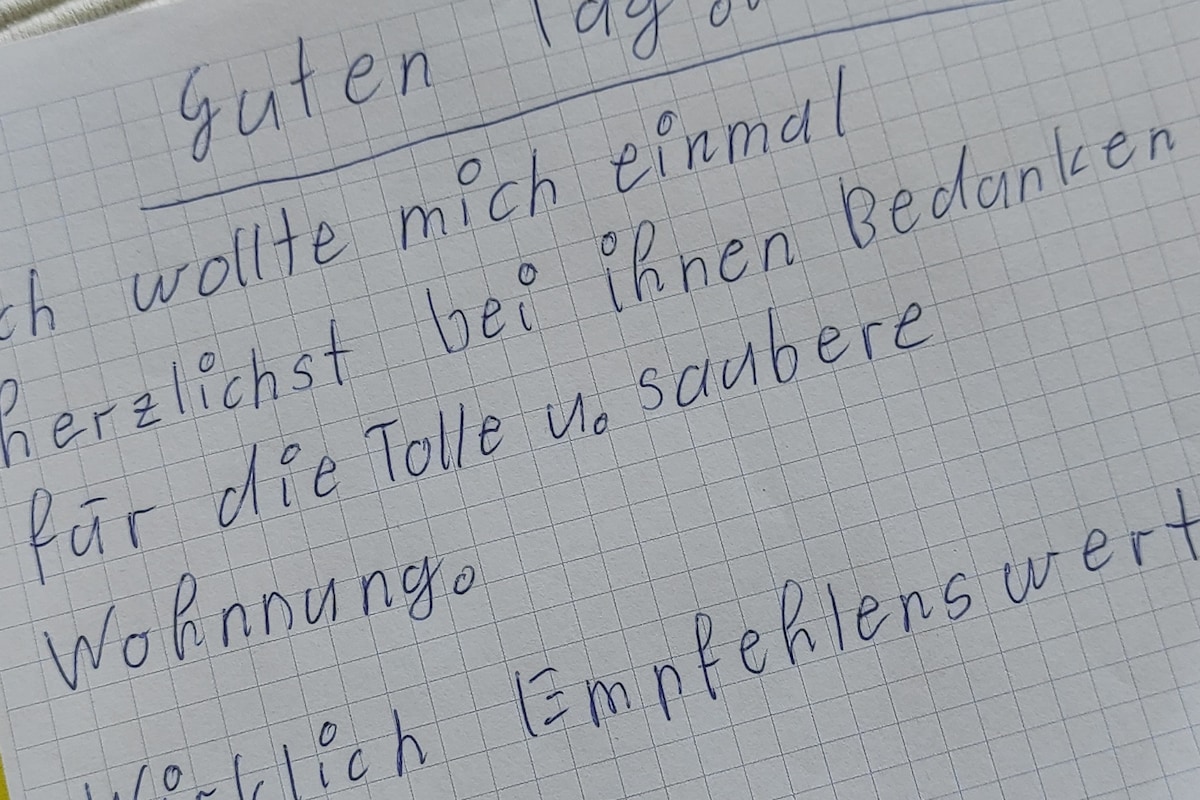 Guten Tag
ch wollte mich einmal
herzlichst bei ihnen Bedanken
für die Tolle u. saubere
Wohnnung.
Wirklich Empfehlenswert